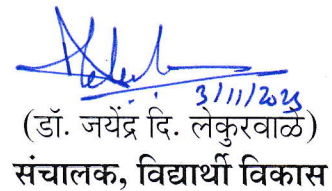 3/11/2023
(डॉ. जयेंद्र दि. लेकुरवाळे)
संचालक, विद्यार्थी विकास